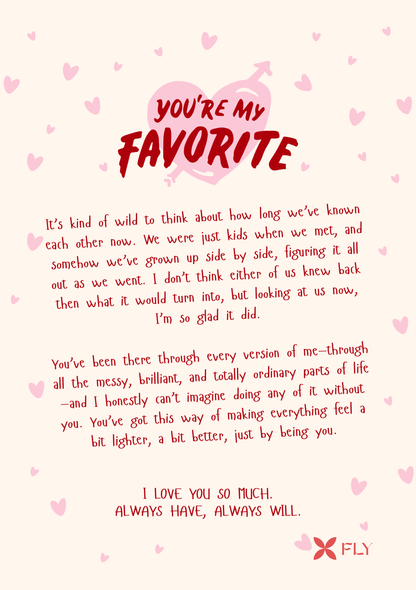 YOU'RE MY
FAVORITE
It's kind of wild to think about how long we've known
each other now. We were just kids when we met, and
somehow we've grown up side by side, figuring it all
out as we went. I don't think either of us knew back
then what it would turn into, but looking at us now,
I'm so glad it did.
You've been there through every version of me—through
all the messy, brilliant, and totally ordinary parts of life
—and I honestly can't imagine doing any of it without
you. You've got this way of making everything feel a
bit lighter, a bit better, just by being you.
I LOVE YOU SO MUCH.
ALWAYS HAVE, ALWAYS WILL.
FLY